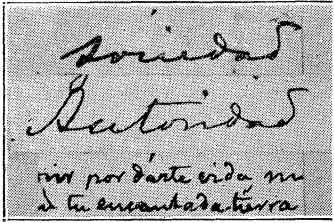 sociedad
Autoridad
por dárte vida
à tu encantada tierra